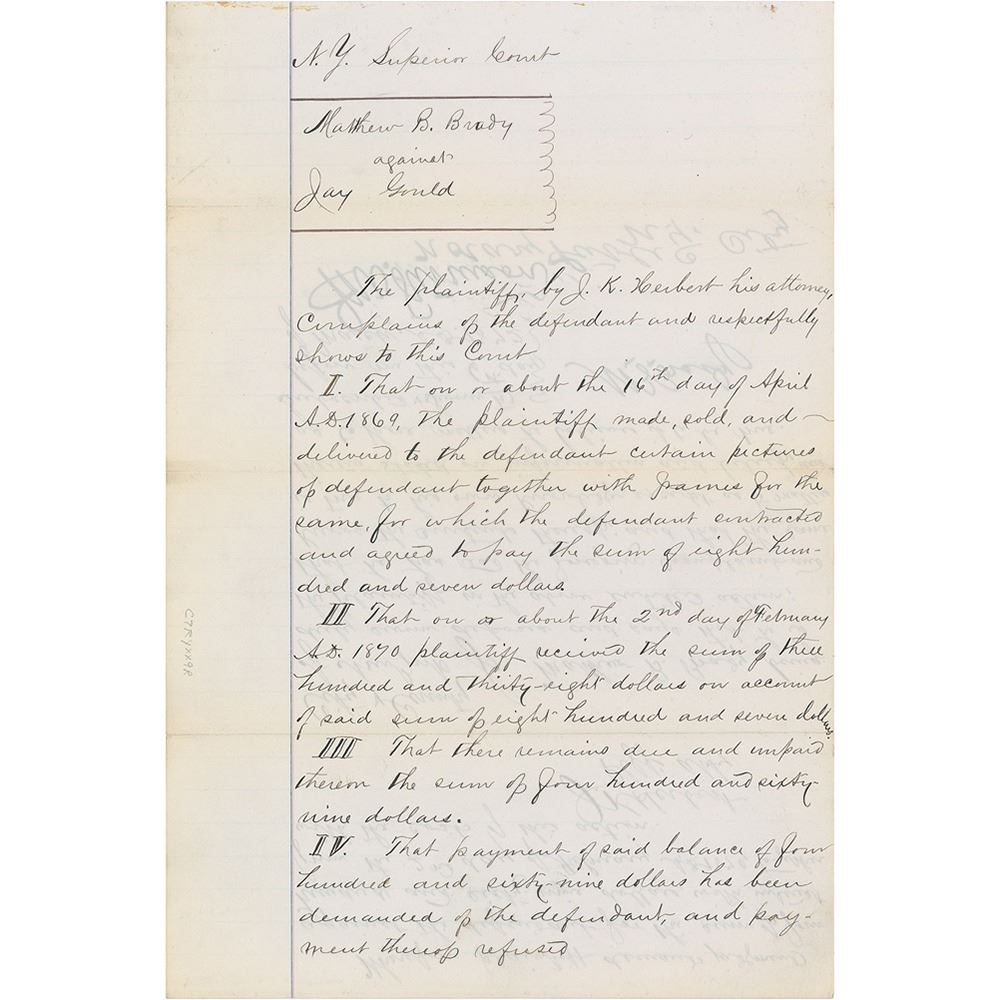 N. Y. Superior Court
Matthew B. Brady
against
Jay Gould
The plaintiff, by J. K. Herbert his attorney,
complains of the defendant and respectfully
shows to this Court
I. That on or about the 16th day of April
A.D. 1869, the plaintiff made, sold, and
delivered to the defendant certain pictures
of defendant together with frames for the
same, for which the defendant contracted
and agreed to pay the sum of eight hun-
dred and seven dollars.
II That on or about the 2nd day of February
A.D. 1870 plaintiff received the sum of three
hundred and thirty-eight dollars on account
of said sum of eight hundred and seven dollars.
III That there remains due and unpaid
thereon the sum of four hundred and sixty-
nine dollars.
IV. That payment of said balance of four
hundred and sixty-nine dollars has been
demanded of the defendant, and pay-
ment thereof refused